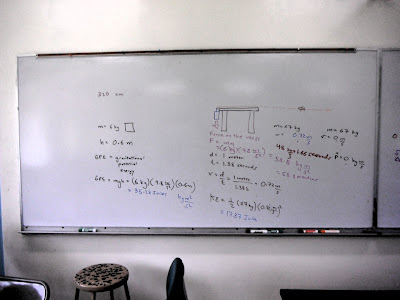 320 cm
m = 6 kg
h = 0.6 m
GPE = gravitational
potential
energy
GPE = mgh = (6 kg)(9.8 m/s²)(0.6m)
= 35.28 Joules
kg m²/s²
Force on the
F = mg
= (6 kg)(9.8 m/s²) = 58.8 kg m/s²
d = 1 meter
t = 1.38 seconds
v = d/t = 1 meter/1.38 s = 0.72 m/s
KE = ½ (67 kg)(0.72 m/s)²
= 17.37 Joules
m = 67 kg
v = 0.72 m/s
m = 67 kg
v = 0 m/s
P = 0 kg m/s